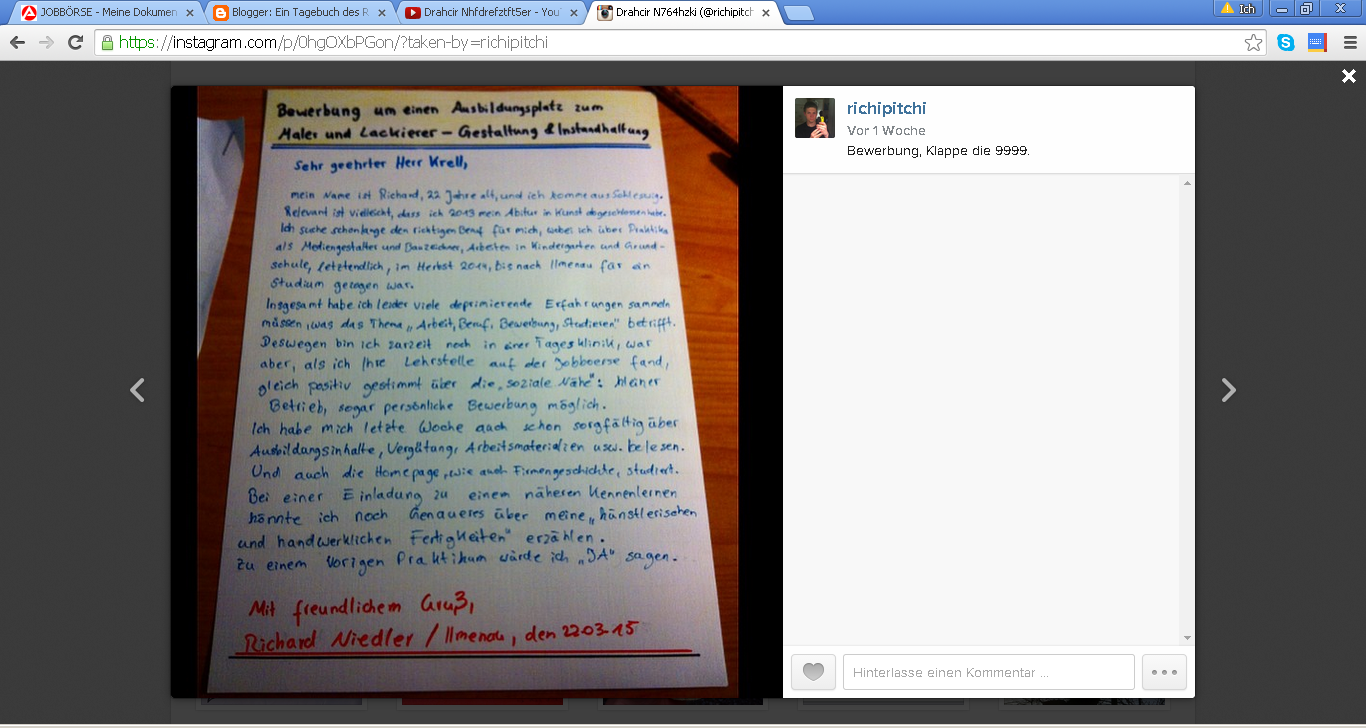 JOBBÖRSE - Meine Dokumen
Blogger: Ein Tagebuch des R
Drahcir Nhfdrefztft5er - You
Drahcir N764hzki (@richipitch
Ich
https://instagram.com/p/0hgOXbPGon/?taken-by=richipitchi
Bewerbung um einen Ausbildungsplatz zum
Maler und Lackierer – Gestaltung & Instandhaltung
Sehr geehrter Herr Krell,
mein Name ist Richard, 22 Jahre alt, und ich komme aus Schleswig.
Relevant ist vielleicht, dass ich 2013 mein Abitur in Kunst abgeschlossen habe.
Ich suche schon lange den richtigen Beruf für mich, wobei ich über Praktika
als Mediengestalter und Bauzeichner, Arbeiten in Kindergarten und Grund-
schule, letztendlich, im Herbst 2014, bis nach Ilmenau für ein
Studium gezogen war.
Insgesamt habe ich leider viele deprimierende Erfahrungen sammeln
müssen, was das Thema „Arbeit, Beruf, Bewerbung, Studieren" betrifft.
Deswegen bin ich zurzeit noch in einer Tagesklinik, war
aber, als ich Ihre Lehrstelle auf der Jobboerse fand,
gleich positiv gestimmt über die „soziale Nähe": kleiner
Betrieb, sogar persönliche Bewerbung möglich.
Ich habe mich letzte Woche auch schon sorgfältig über
Ausbildungsinhalte, Vergütung, Arbeitsmaterialien usw. belesen.
Und auch die Homepage, wie auch Firmengeschichte, studiert.
Bei einer Einladung zu einem näheren Kennenlernen
könnte ich noch Genaueres über meine „künstlerischen
und handwerklichen Fertigkeiten" erzählen.
Zu einem vorigen Praktikum würde ich „JA" sagen.
Mit freundlichem Gruß,
Richard Niedler / Ilmenau, den 22-03-15
richipitchi
Vor 1 Woche
Bewerbung, Klappe die 9999.
Hinterlasse einen Kommentar ...